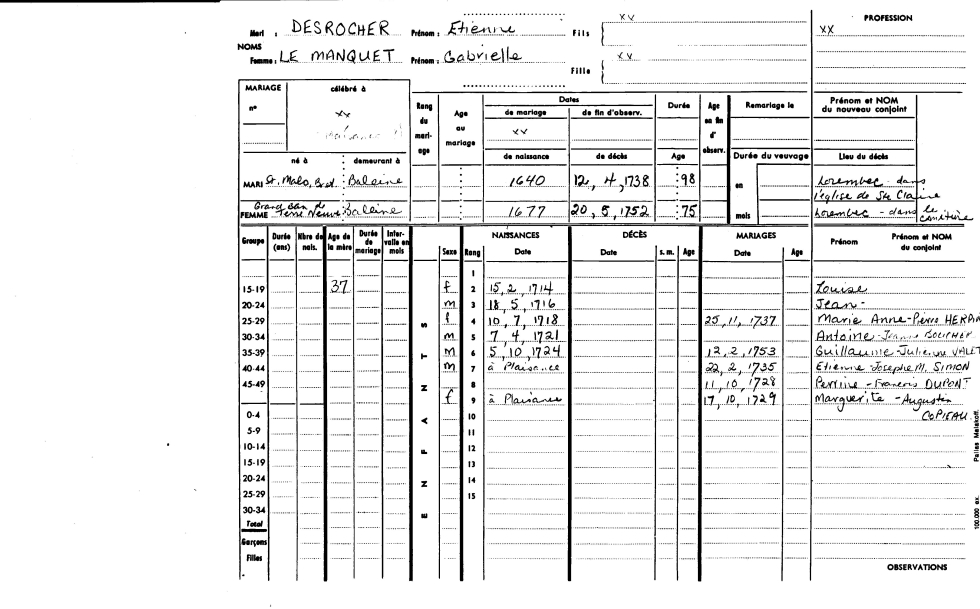 Mari : DESROCHER Prénom : Etienne Fils xx
NOMS
Femme : LE MANQUET Prénom : Gabrielle Fille xx
PROFESSION
xx
MARIAGE célébré à
n° xx
né à : demeurant à
Rang du mari-age
Age au mariage
Dates
de mariage de fin d'observ.
xx
de naissance de décès
Durée
Age
Age en fin d' observ.
Remariage le
Durée du veuvage
en
mois
Prénom et NOM du nouveau conjoint
Lieu du décès
MARI St. Malo, : Baleine 1640 12, 4, 1738 98 Lorembec - dans
l'église de Ste Claire
Grand
FEMME Terre Neuve : Baleine 1677 20, 5, 1752 75 Lorembec - dans le
cimitière
Groupe Durée (ans) Nbre de nais. Age de la mère Durée de mariage Inter-valle en mois
ENFANTS
NAISSANCES DÉCÈS MARIAGES
Sexe Rang Date Date s. m. Age Date Age Prénom Prénom et NOM du conjoint
1
15-19 37 f 2 15, 2, 1714 Louise
20-24 m 3 18, 5, 1716 Jean -
25-29 f 4 10, 7, 1718 25, 11, 1737 Marie Anne - Pierre HERPIN
30-34 m 5 7, 4, 1721 Antoine - Jeanne BOUCHER
35-39 m 6 5, 10, 1724 12, 2, 1753 Guillaume - Julienne VALET
40-44 m 7 à Plaisance 22, 2, 1735 Etienne - Josephe M. SIMON
45-49 8 11, 10, 1728 Perrine - Francois DUPONT
f 9 à Plaisance 17, 10, 1729 Marguerite - Augustin
0-4 10 COPIEAU
5-9 11
10-14 12
15-19 13
20-24 14
25-29 15
30-34
Total
Garçons
Filles
OBSERVATIONS
100.000 ex.